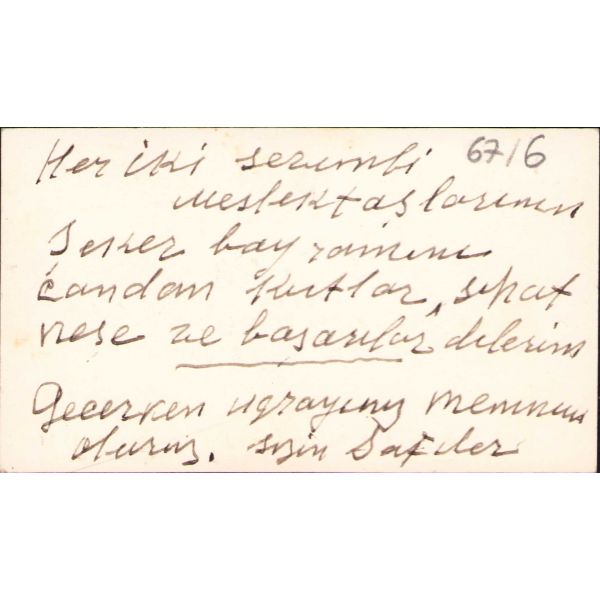 67/6
Her iki sevimli
meslektaşlarımın
Şeker bayramını
candan kutlar, sıhat
neşe ve başarılar dilerim
Geçerken uğrayınız memnun
oluruz. sizin